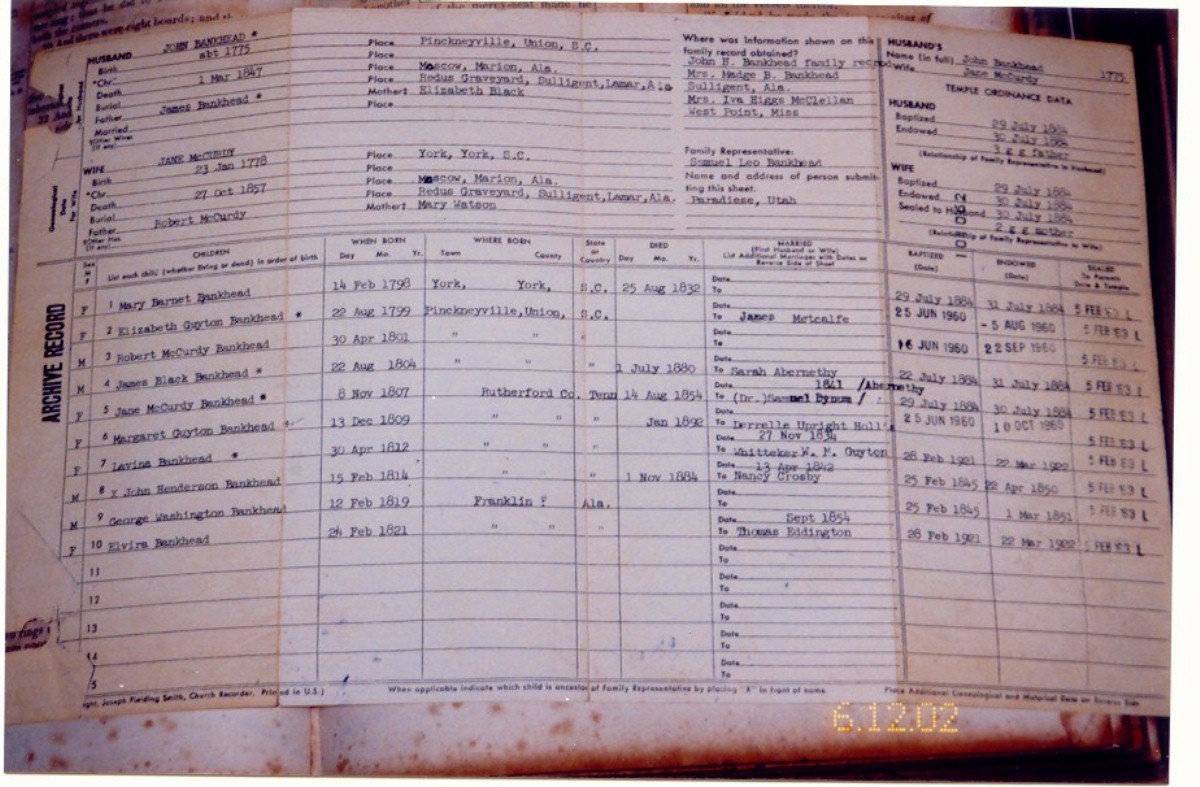 ring; thus he did to
both the corners.
30 And there were eight boards; and
of the mercy-seat made he
HUSBAND JOHN BANKHEAD *
Birth abt 1775 Place Pinckneyville, Union, S.C.
*Chr.
Death 1 Mar 1847 Place Moscow, Marion, Ala.
Burial Place Redus Graveyard, Sulligent,Lamar,Ala
Father James Bankhead * Mother: Elizabeth Black
Married Place
*Other Wives
(if any)
WIFE JANE McCURDY
Birth 23 Jan 1778 Place York, York, S.C.
*Chr.
Death 27 Oct 1857 Place Moscow, Marion, Ala.
Burial Place Redus Graveyard, Sulligent,Lamar,Ala.
Father Robert McCurdy Mother: Mary Watson
*Other Hus.
(if any)
Where was information shown on this
family record obtained?
John H. Bankhead family record
Mrs. Madge B. Bankhead
Sulligent, Ala.
Mrs. Iva Higgs McClellan
West Point, Miss
Family Representative:
Samuel Leo Bankhead
Name and address of person submit-
ting this sheet.
Paradise, Utah
HUSBAND'S
Name (in full) John Bankhead 1775
Wife Jane McCurdy
TEMPLE ORDINANCE DATA
HUSBAND
Baptized 29 July 1884
Endowed 30 July 1884
3 g g father
(Relationship of Family Representative to Husband)
WIFE
Baptized 29 July 1884
Endowed 30 July 1884
Sealed to Husband 30 July 1884
2 g g mother
(Relationship of Family Representative to Wife)
ARCHIVE RECORD
Sex M F CHILDREN WHEN BORN WHERE BORN State or Country DIED MARRIED BAPTIZED ENDOWED SEALED
List each child (whether living or dead) in order of birth Day Mo. Yr. Town County Day Mo. Yr. (First Husband or Wife) List Additional Marriages with Dates on Reverse Side of Sheet (Date) (Date) To Parents Date & Temple
F 1 Mary Barnet Bankhead 14 Feb 1798 York, York, S.C. 25 Aug 1832 Date To 29 July 1884 31 July 1884 5 FEB '63 L
F 2 Elizabeth Guyton Bankhead * 22 Aug 1799 Pinckneyville,Union, S.C. Date To James Metcalfe 25 JUN 1960 - 5 AUG 1960 5 FEB '63 L
M 3 Robert McCurdy Bankhead 30 Apr 1801 " " " Date To 16 JUN 1960 22 SEP 1960 5 FEB '63 L
M 4 James Black Bankhead * 22 Aug 1804 " " " 1 July 1880 Date To Sarah Abernethy 22 July 1884 31 July 1884 5 FEB '63 L
F 5 Jane McCurdy Bankhead * 8 Nov 1807 Rutherford Co. Tenn 14 Aug 1854 Date 1841 /Abernethy To (Dr.)Samuel Bynum / 29 July 1884 30 July 1884 5 FEB '63 L
F 6 Margaret Guyton Bankhead 13 Dec 1809 " " " Jan 1892 Date To Derrelle Upright Hollis 25 JUN 1960 10 OCT 1960 5 FEB '63 L
F 7 Lavina Bankhead * 30 Apr 1812 " " " Date 27 Nov 1834 To Whitteker W. M. Guyton 28 Feb 1921 22 Mar 1922 5 FEB '63 L
M 8 x John Henderson Bankhead 15 Feb 1814 " " 1 Nov 1884 Date 13 Apr 1842 To Nancy Crosby 25 Feb 1845 22 Apr 1850 5 FEB '63 L
M 9 George Washington Bankhead 12 Feb 1819 Franklin ? Ala. Date To 25 Feb 1845 1 Mar 1851 5 FEB '63 L
F 10 Elvira Bankhead 24 Feb 1821 " " " Date Sept 1854 To Thomas Eddington 28 Feb 1921 22 Mar 1922 5 FEB '63 L
11 Date To
12 Date To
13 Date To
14 Date To
15 Date To
Joseph Fielding Smith, Church Recorder. Printed in U.S.) When applicable indicate which child is ancestor of Family Representative by placing "X" in front of name. Place Additional Genealogical and Historical Data on Reverse Side
6.12.02